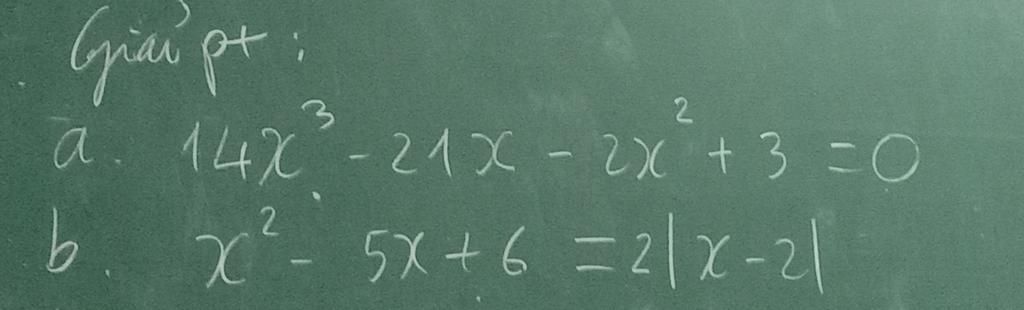 Giải pt :
a. 14x³ - 21x - 2x² + 3 = 0
b. x² - 5x + 6 = 2|x - 2|